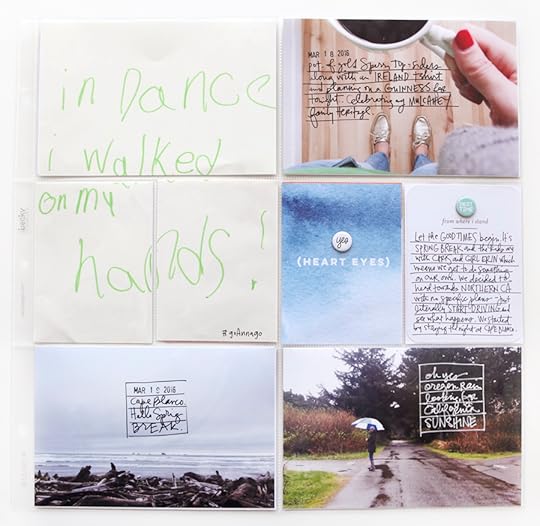 in Dance
i walked
on my
hands!
#goAnnago
MAR 18 2016
pot of gold Sperry Top-Siders
along with an IRELAND t-shirt
and planning on a GUINNESS
tonight. Celebrating my MULCAHEY
family heritage.
becky
yes
(HEART EYES)
from where i stand
Let the GOOD TIMES begin. It's
SPRING BREAK and the kids are
with CHRIS and GIRL ERIN which
means we get to do something
on our own. We decided to
head towards NORTHERN CA
with no specific plans - just
literally START DRIVING and
see what happens. We started
by staying the night at CAPE BLANCO.
MAR 19 2016
Cape Blanco.
Hello Spring
BREAK.
oh yes
oregon rain
looking for
California
SUNSHINE